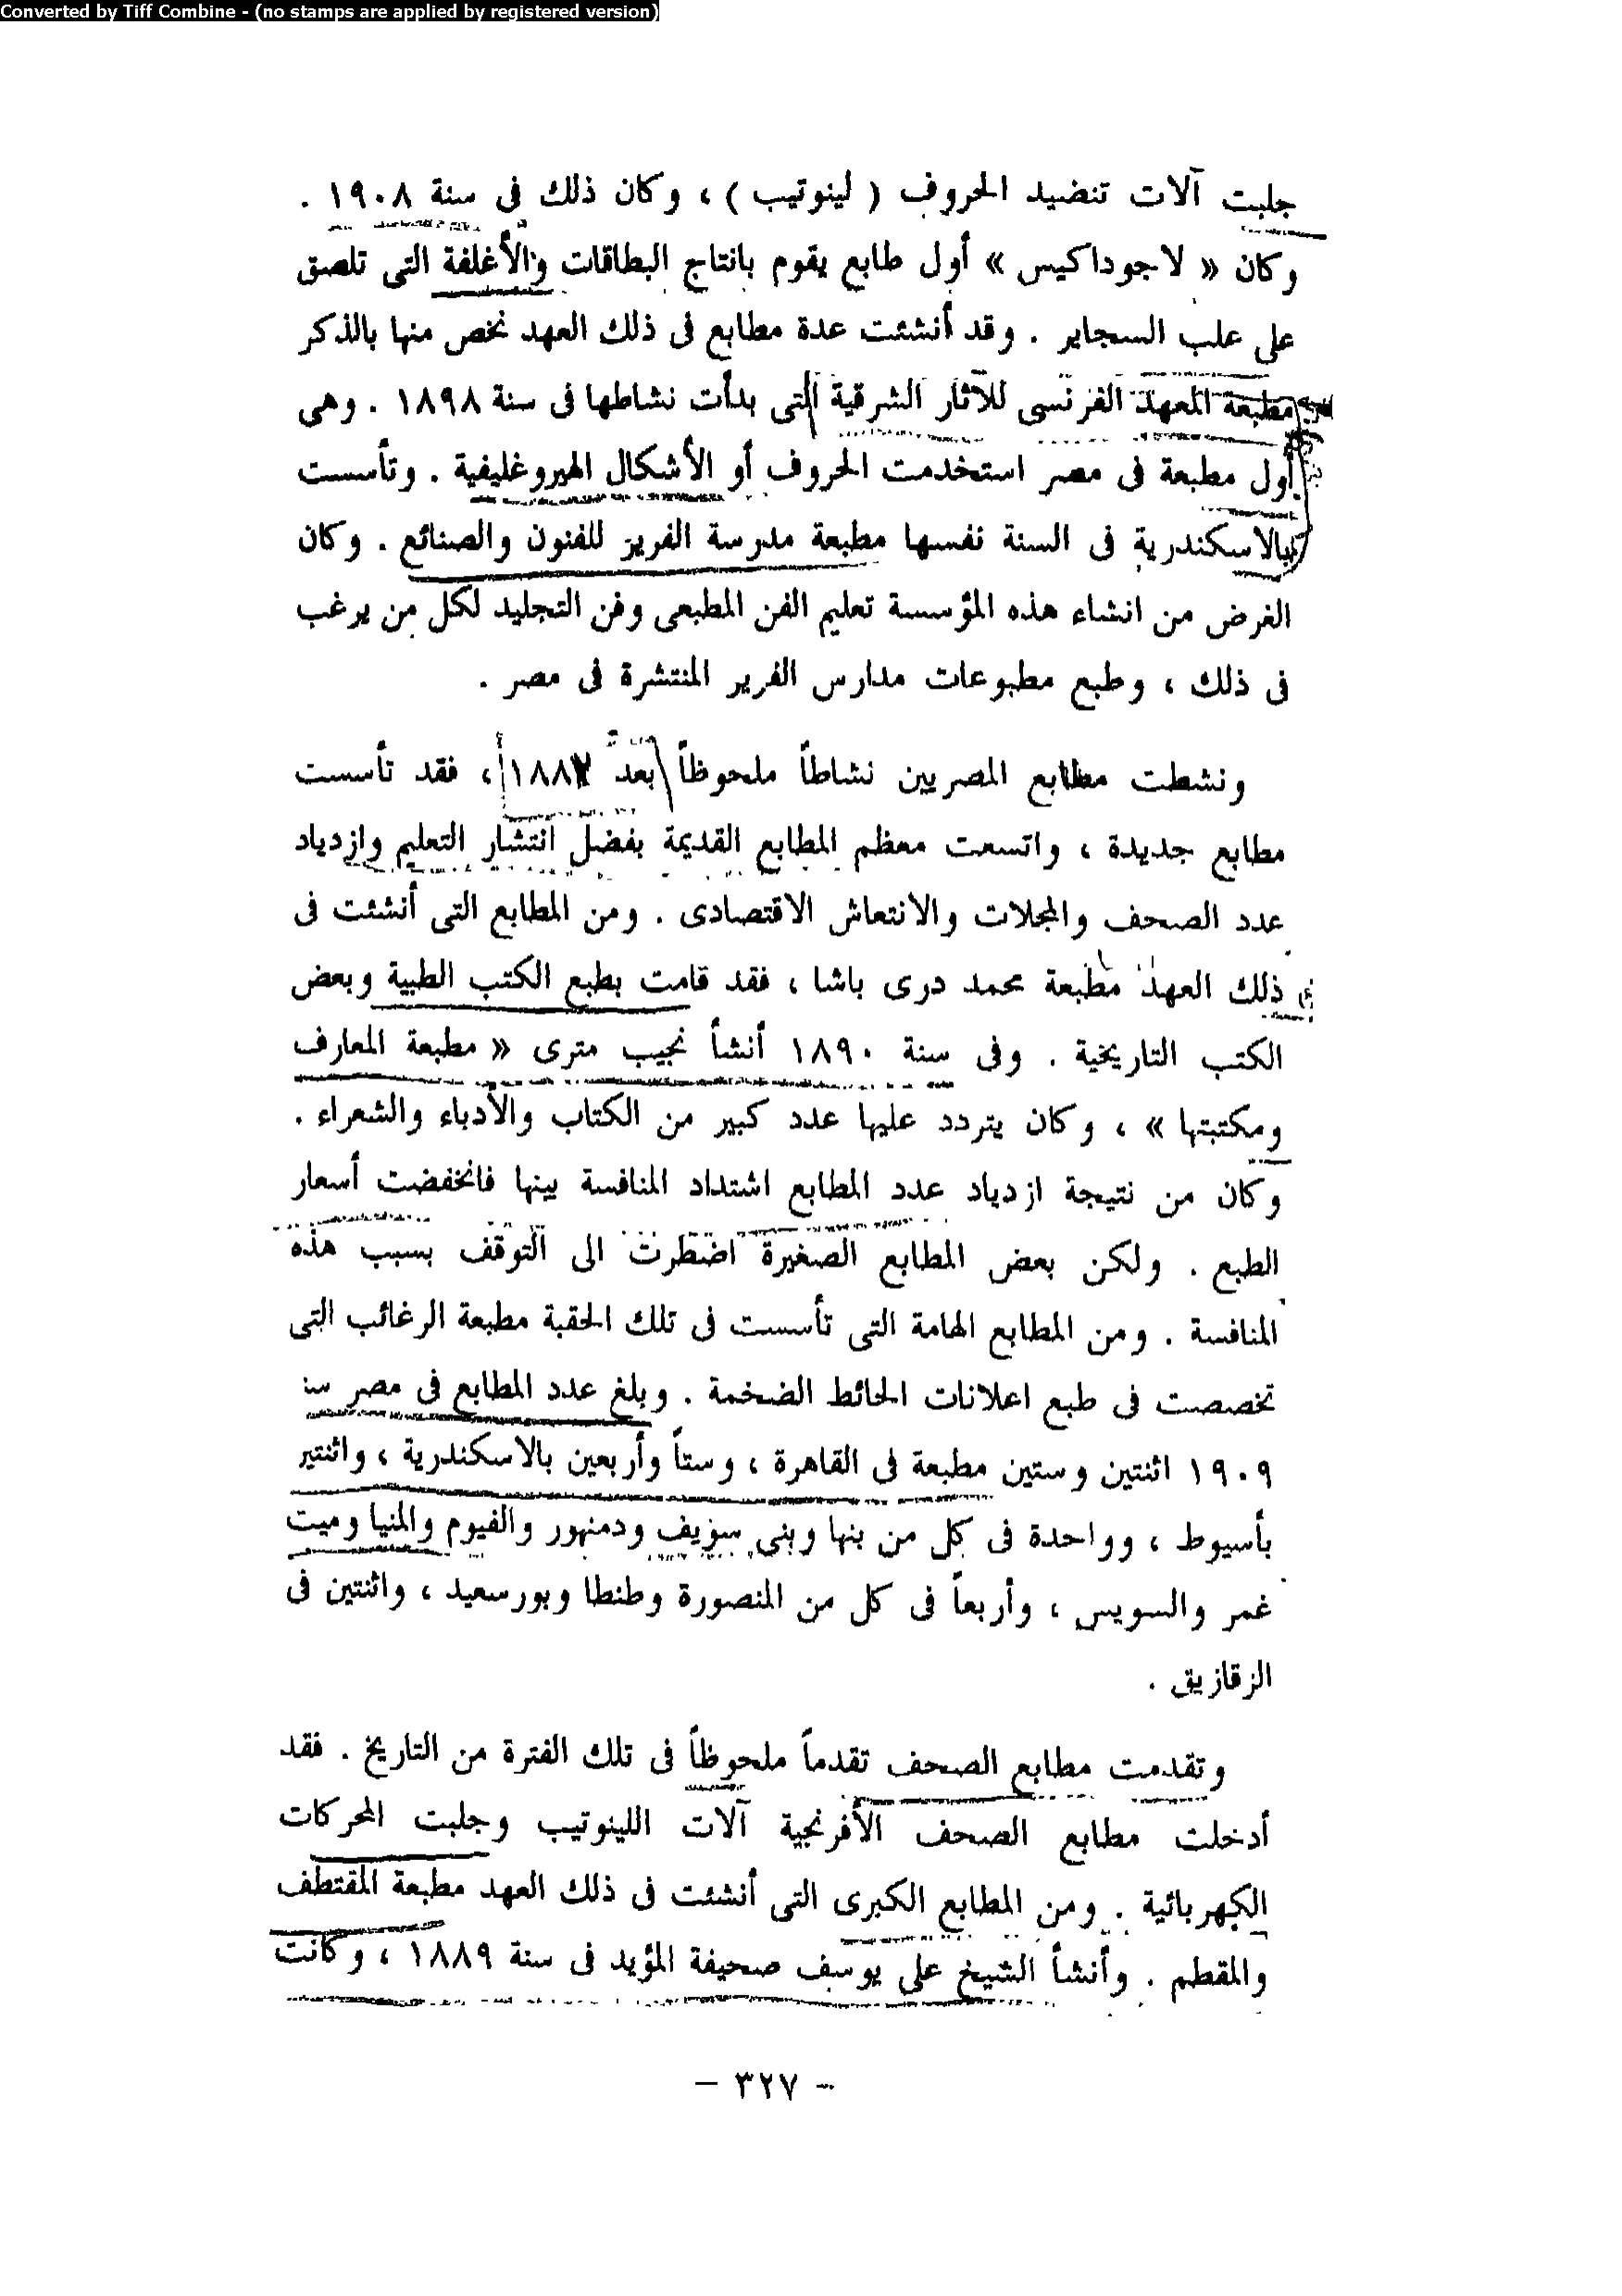 Converted by Tiff Combine - (no stamps are applied by registered version)
جلبت آلات تنضيد الحروف ( لينوتيب ) ، وكان ذلك فى سنة ١٩٠٨ .
وكان « لاجوداكيس » أول طابع يقوم بانتاج البطاقات والأغلفة التى تلصق
على علب السجاير . وقد أنشئت عدة مطابع فى ذلك العهد نخص منها بالذكر
مطبعة المعهد الفرنسى للآثار الشرقية التى بدأت نشاطها فى سنة ١٨٩٨ . وهى
أول مطبعة فى مصر استخدمت الحروف أو الأشكال الهيروغليفية . وتأسست
بالاسكندرية فى السنة نفسها مطبعة مدرسة الفرير للفنون والصنائع . وكان
الغرض من انشاء هذه المؤسسة تعليم الفن المطبعى وفن التجليد لكل من يرغب
فى ذلك ، وطبع مطبوعات مدارس الفرير المنتشرة فى مصر .
ونشطت مطابع المصريين نشاطاً ملحوظاً بعد ، فقد تأسست
مطابع جديدة ، واتسعت معظم المطابع القديمة بفضل انتشار التعليم وازدياد
عدد الصحف والمجلات والانتعاش الاقتصادى . ومن المطابع التى أنشئت فى
ذلك العهد مطبعة محمد درى باشا ، فقد قامت بطبع الكتب الطبية وبعض
الكتب التاريخية . وفى سنة ١٨٩٠ أنشأ نجيب مترى « مطبعة المعارف
ومكتبتها » ، وكان يتردد عليها عدد كبير من الكتاب والأدباء والشعراء .
وكان من نتيجة ازدياد عدد المطابع اشتداد المنافسة بينها فانخفضت أسعار
الطبع . ولكن بعض المطابع الصغيرة اضطرت الى التوقف بسبب هذه
المنافسة . ومن المطابع الهامة التى تأسست فى تلك الحقبة مطبعة الرغائب التى
تخصصت فى طبع اعلانات الحائط الضخمة . وبلغ عدد المطابع فى مصر
١٩٠٩ اثنتين وستين مطبعة فى القاهرة ، وستاً وأربعين بالاسكندرية ،
بأسيوط ، وواحدة فى كل من بنها وبنى سويف ودمنهور والفيوم والمنيا وميت
غمر والسويس ، وأربعاً فى كل من المنصورة وطنطا وبورسعيد ، واثنتين فى
الزقازيق .
وتقدمت مطابع الصحف تقدماً ملحوظاً فى تلك الفترة من التاريخ . فقد
أدخلت مطابع الصحف الأفرنجية آلات اللينوتيب وجلبت المحركات
الكهربائية . ومن المطابع الكبرى التى أنشئت فى ذلك العهد مطبعة المقتطف
والمقطم . وأنشأ الشيخ على يوسف صحيفة المؤيد فى سنة ١٨٨٩ ، وكانت
- ٣٢٧ -